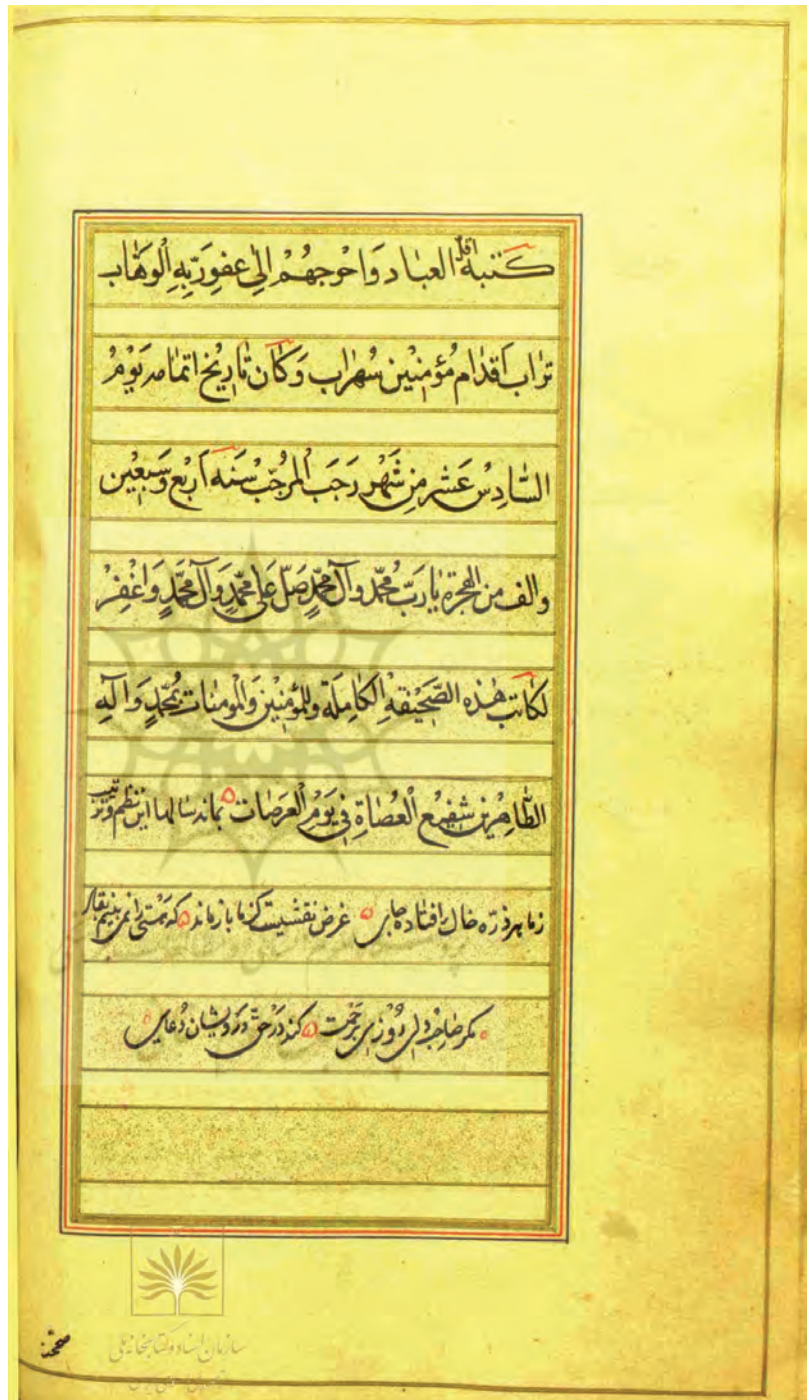 كتبه اقل العباد وَاحْوجهُمْ اِلٰى عفوِرَبِّهِ الْوهّاب
تراب اَقدٰام مُؤمِنين سُهرٰاب وَكٰان تٰاريْخ اتمامه يَوْمُ
السّٰادِسْ عَشر مِنْ شَهْر رَجَب المُرجّبْ سَنه اَربْع وَسَبْعين
والف من الهجرة يٰارَبّ مُحمّد وآل مُحمّدٍ صَلّ عَلى مُحمّدٍ وَآل مُحَمّدٍ وَاغْفِرْ
لكٰاتب هٰذه الصّحيْفةِ الكٰامِلَة وللمؤمِنيْن وَالمومنات بمُحمّدٍ وَآلِهِ
الطّٰاهِرين شفيع الْعُصٰاةِ في يَوْم الْعَرَصٰات ۵ بماند سٰالها اين نظم وترتيب
زما هر ذرّه خاك افتاده جاى ۵ غرض نقشيست كز ما باز ماند ۵ كه هستى را نمى بينم بقائى
مكر صاحبدلى روزى برحمت ۵ كند دَرْ حقّ درويشان دُعاى
سازمان اسناد و کتابخانه ملی